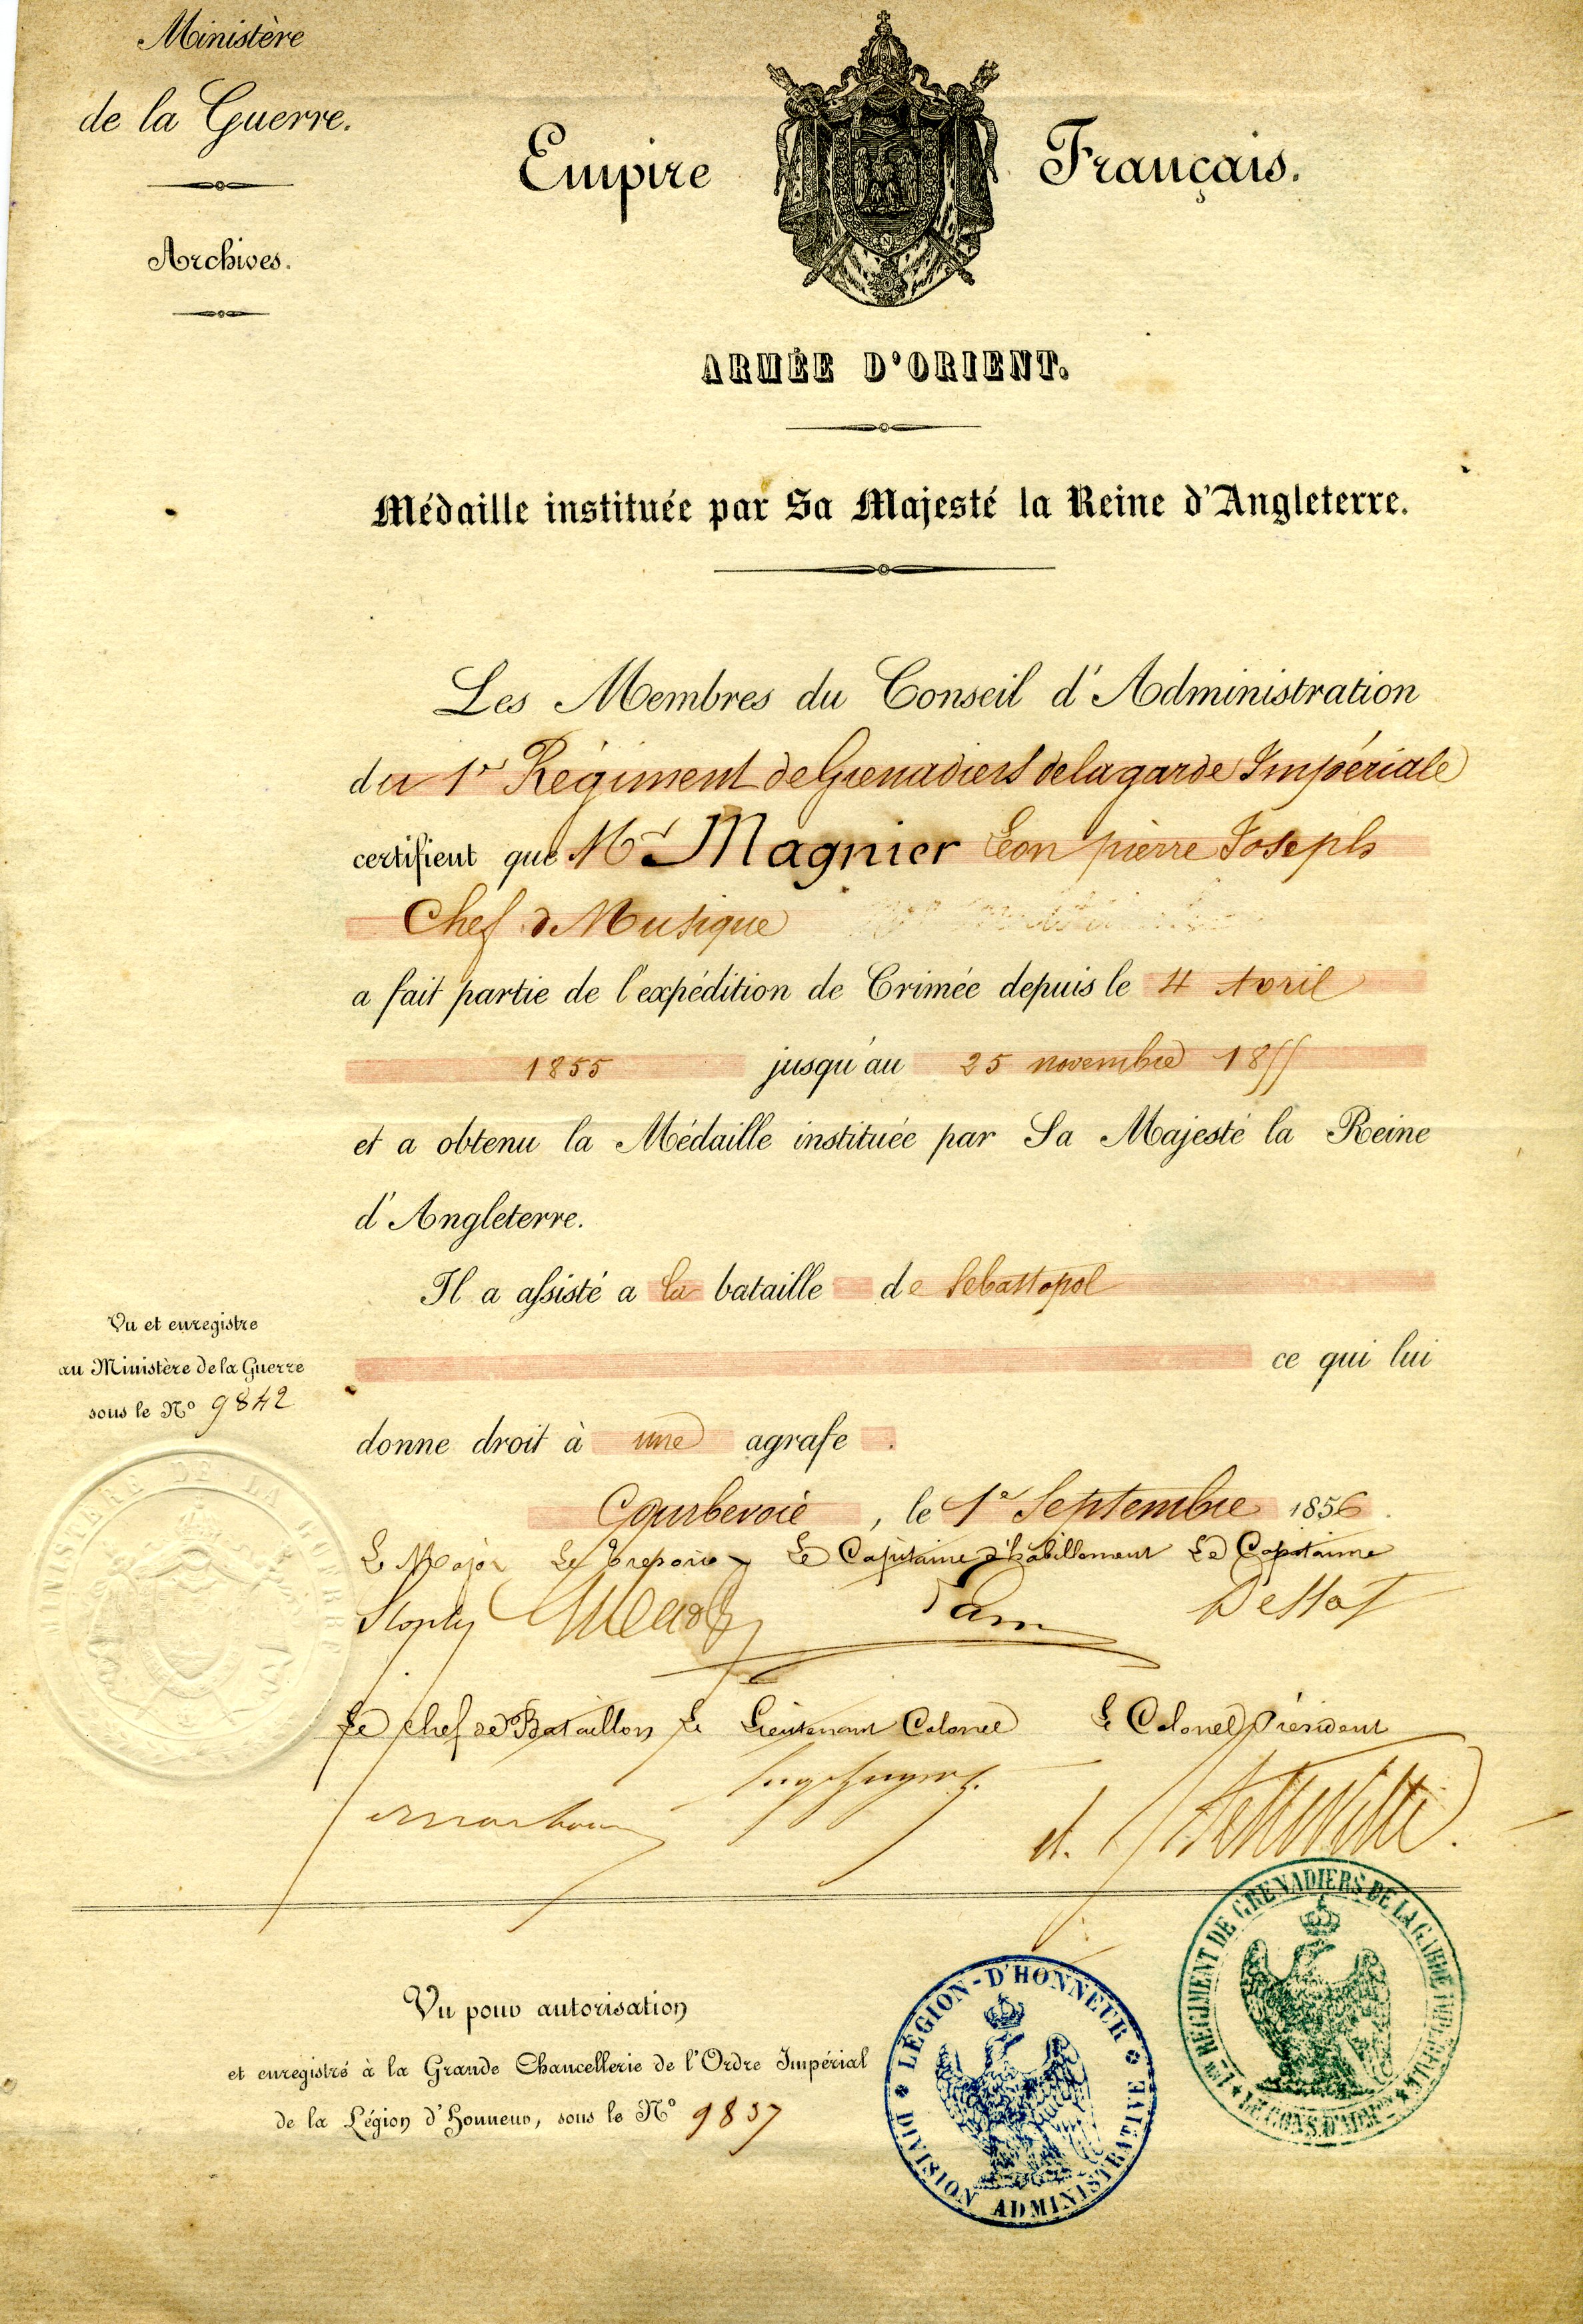 Ministère
de la Guerre.
Archives.
Empire Français.
ARMÉE D'ORIENT.
Médaille instituée par Sa Majesté la Reine d'Angleterre.
Les Membres du Conseil d'Administration
du 1er Régiment de Grenadiers de la garde Impériale
certifient que Mr Magnier Leon pierre Joseph
Chef de Musique
a fait partie de l'expédition de Crimée depuis le 4 Avril
1855 jusqu'au 25 novembre 1855
et a obtenu la Médaille instituée par Sa Majesté la Reine
d'Angleterre.
Il a assisté a la bataille de Sebastopol
ce qui lui
donne droit à une agrafe .
Courbevoie, le 1er Septembre 1856.
Vu et enregistre
au Ministère de la Guerre
sous le No 9842
MINISTÈRE DE LA GUERRE
Le Major Le Trésorier Le Capitaine d'habillement Le Capitaine
Le chef de Bataillon Le Lieutenant Colonel Le Colonel Président
Vu pour autorisation
et enregistré à la Grande Chancellerie de l'Ordre Impérial
de la Légion d'Honneur, sous le No 9837
LÉGION-D'HONNEUR
DIVISION ADMINISTRATIVE
1ER RÉGIMENT DE GRENADIERS DE LA GARDE IMPÉRIALE